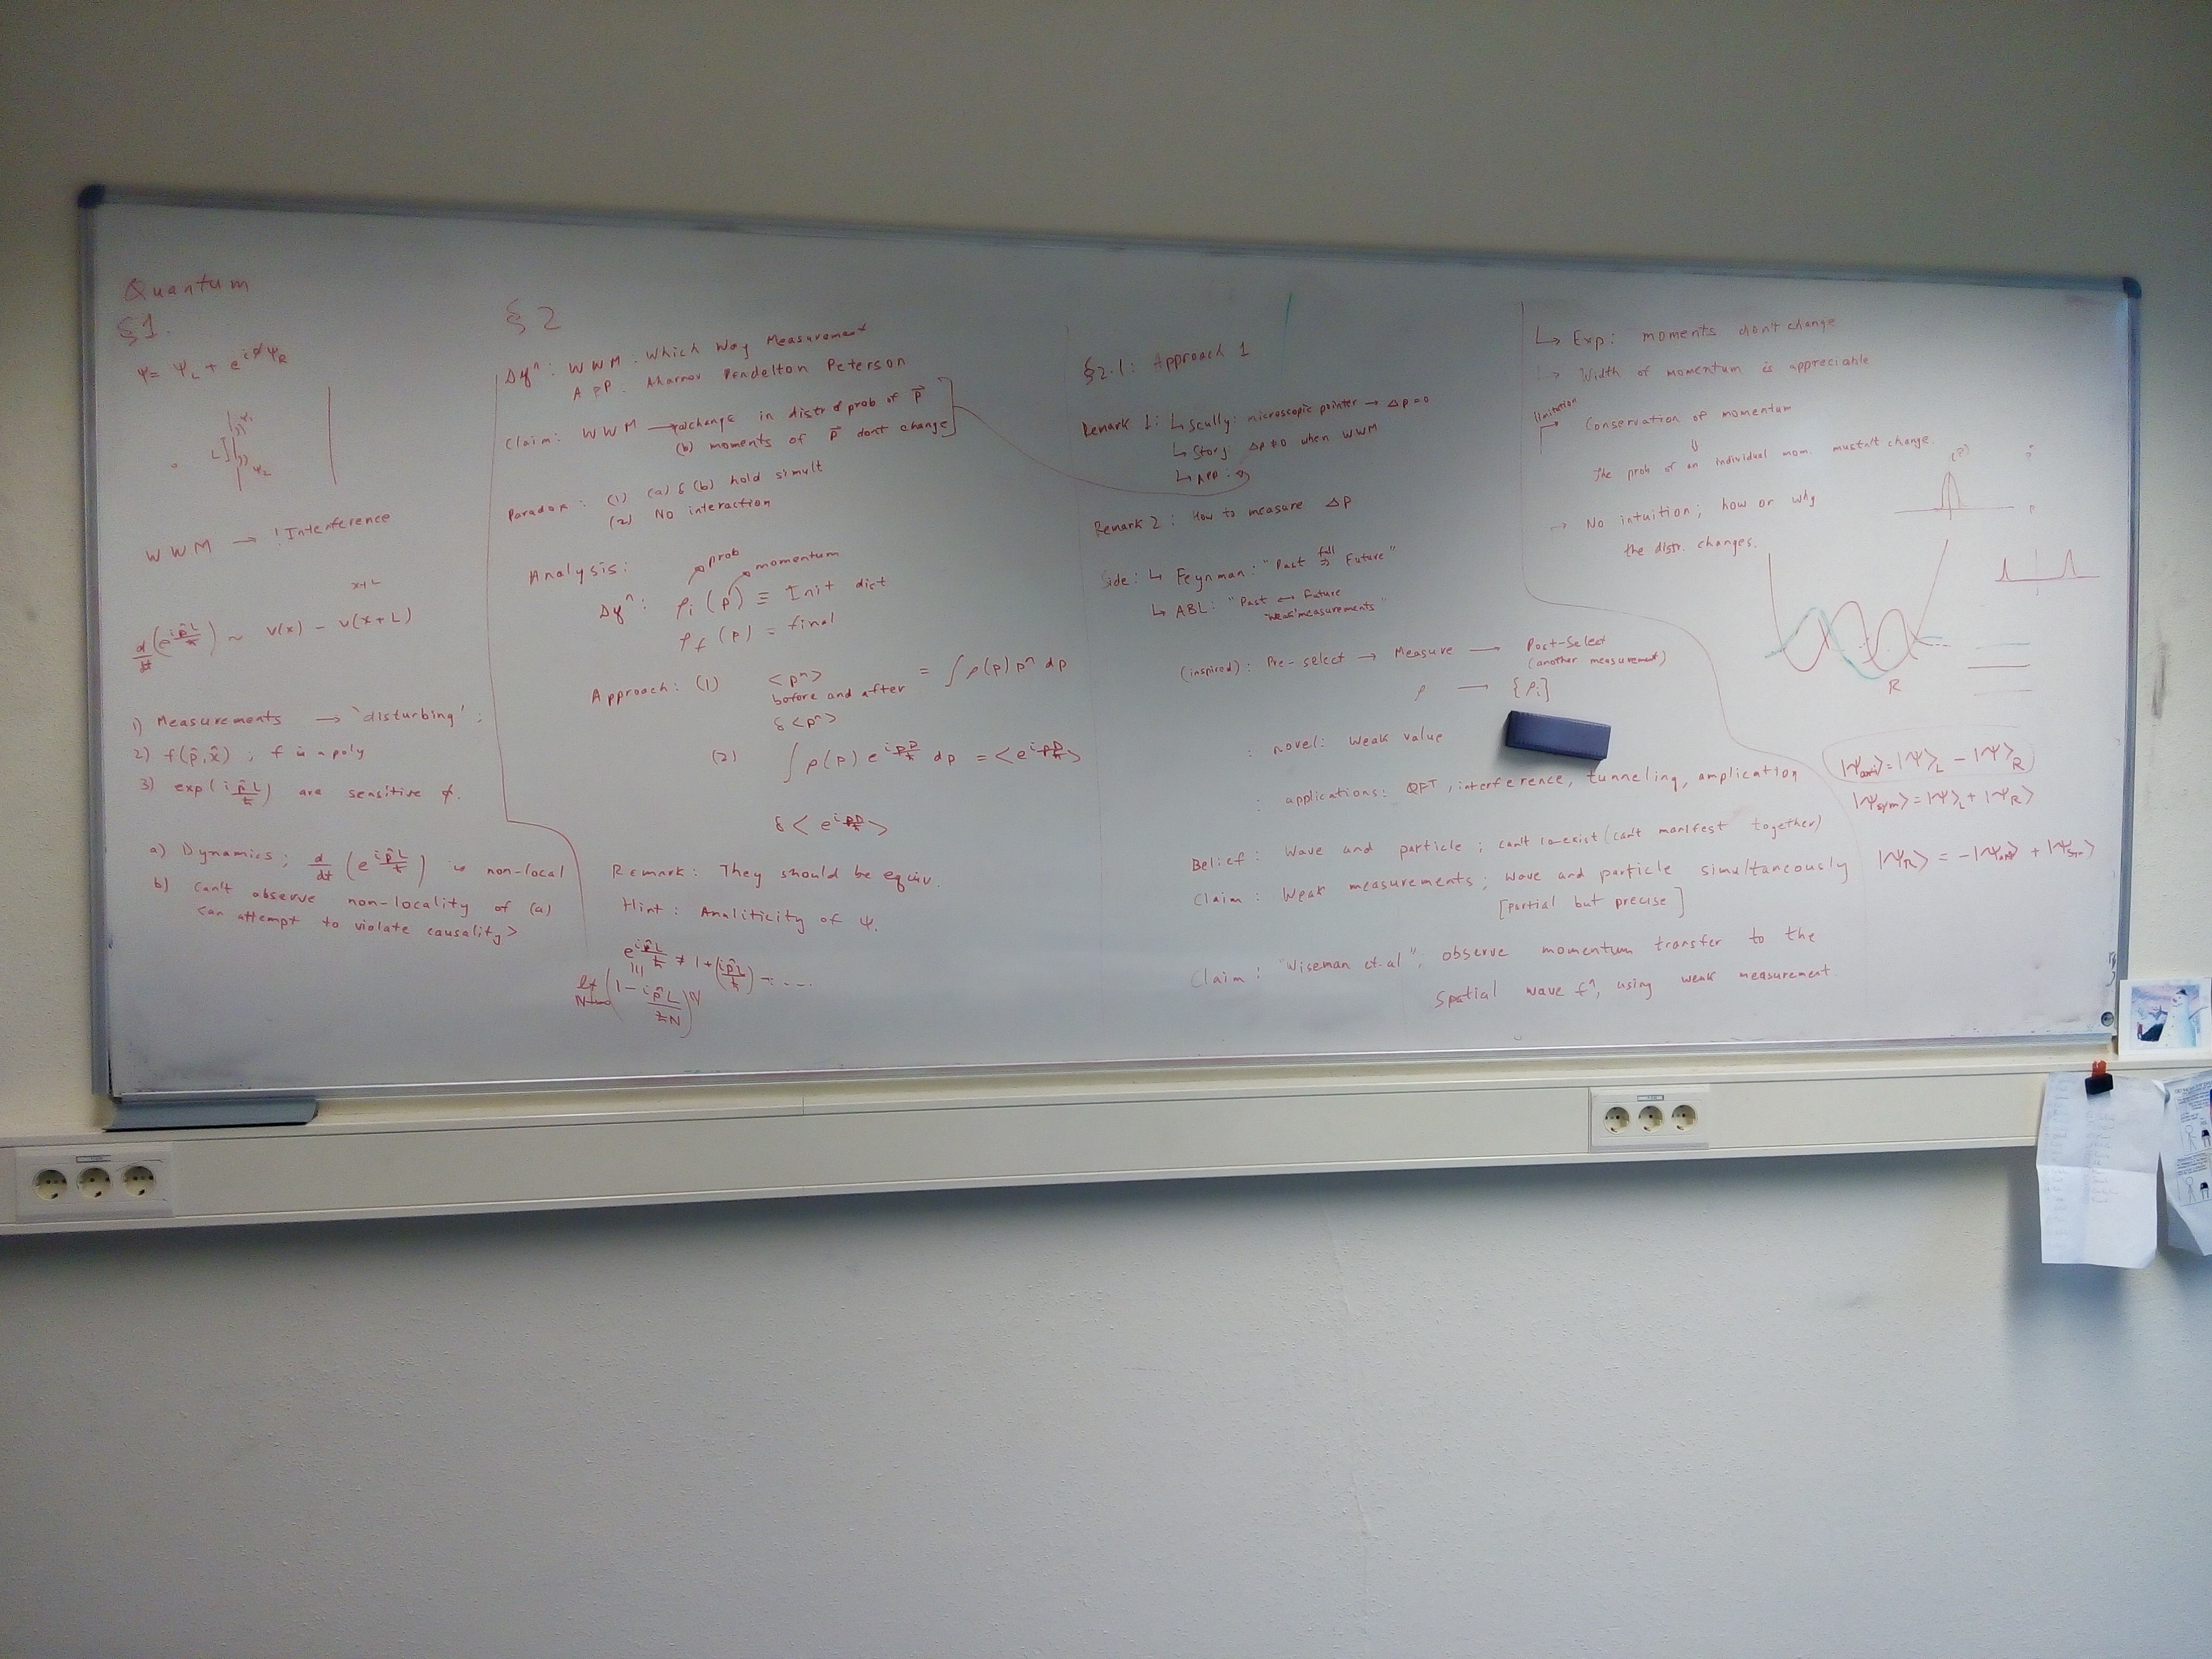 Quantum
§1.
ψ = ψ_L + e^{iφ} ψ_R
L
ψ_2
WWM → ! Interference
x+L
d/dt (e^{i p̂ L/ħ}) ~ V(x) - V(x+L)
1) Measurements → 'disturbing';
2) f(p̂, x̂) ; f is a poly
3) exp(i p̂ L/ħ) are sensitive φ.
a) Dynamics; d/dt (e^{i p̂ L/ħ}) is non-local
b) Can't observe non-locality of (a)
can attempt to violate causality>
§2
Δyⁿ: WWM - Which Way Measurement
APP - Aharnov Pendelton Peterson
Claim: WWM → (a) change in distr of prob of p⃗
(b) moments of p⃗ don't change
Paradox: (1) (a) & (b) hold simult
(2) No interaction
Analysis: prob
momentum
Δyⁿ: ρ_i (p) ≡ Init dist
ρ_f (p) = final
Approach: (1) <pⁿ> = ∫ρ(p) pⁿ dp
before and after
δ<pⁿ>
(2) ∫ρ(p) e^{i pD/ħ} dp = <e^{i pD/ħ}>
δ<e^{i pD/ħ}>
Remark: They should be equiv.
Hint: Analiticity of ψ.
e^{i p̂ L/ħ} ≠ 1 + (i p̂ L/ħ) + ....
lt N→∞ (1 - i p̂ L/ħN)^N
§2.1: Approach 1
Remark 1: ↳ Scully: microscopic pointer → Δp=0
↳ Story: Δp≠0 when WWM
↳ APP:
Remark 2: How to measure Δp
Side: ↳ Feynman: "Past full ⇒ Future"
↳ ABL: "Past ↔ Future
"weak measurements"
(inspired): Pre-select → Measure → Post-Select
(another measurement)
ρ → {ρ_i}
: novel: Weak value
: applications: QFT, interference, tunneling, amplication
Belief: Wave and particle; can't co-exist (can't manifest together)
Claim: Weak measurements; wave and particle simultaneously
[partial but precise]
Claim: "Wiseman et.al"; observe momentum transfer to the
spatial wave fⁿ, using weak measurement
↳ Exp: moments don't change
↳ Width of momentum is appreciable
limitation
→ Conservation of momentum
⇓
The prob of an individual mom. mustn't change.
→ No intuition; how or why
the distr. changes.
(P)
P
R
|ψ_anti> = |ψ>_L - |ψ>_R
|ψ_sym> = |ψ>_L + |ψ_R>
|ψ_R> = -|ψ_anti> + |ψ_sym>